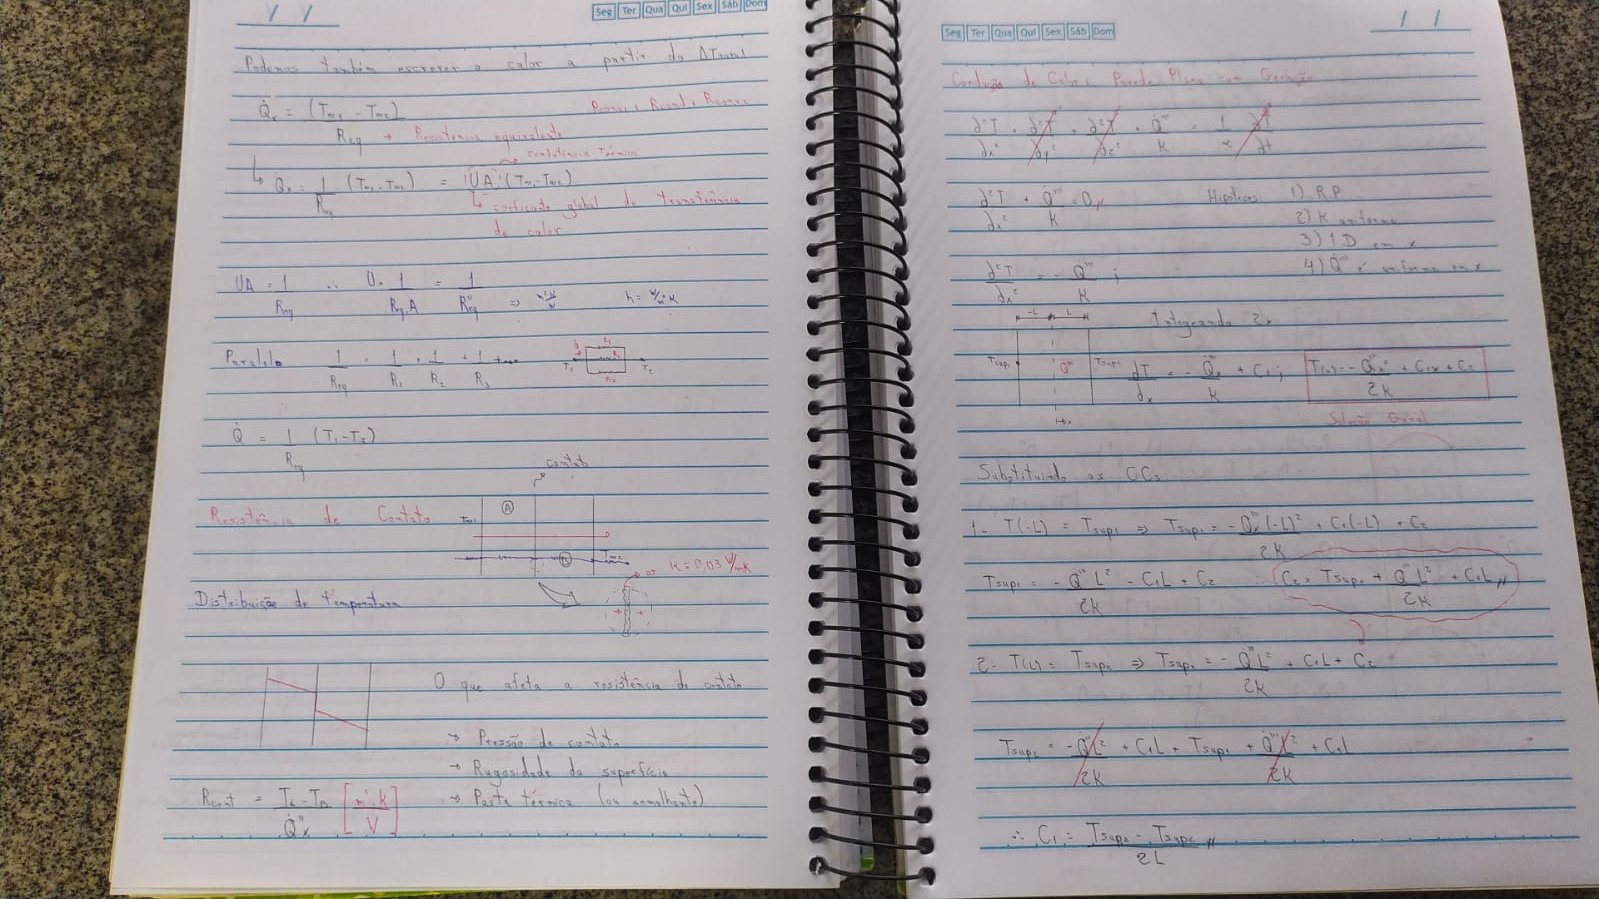 Seg Ter Qua Qui Sex Sáb Dom
Podemos também escrever o calor a partir do ΔTtotal
Q̇x = (T∞1 - T∞2)
Req → Resistência equivalente
Rconv + Rcond + Rconv
↳ Qx = 1/Req (T∞1 - T∞2) = UA (T∞1 - T∞2)
↳ coeficiente global de transferência
de calor
UA = 1/Req ∴ U = 1/(Req.A) = 1/R"eq ⇒
h = W/m²K
Paralelo 1/Req = 1/R1 + 1/R2 + 1/R3 + ...
T1 T2
Q̇ = 1/Req (T1 - T2)
contato
Resistência de Contato
A
B
T∞1
T∞2
ar K = 0,03 W/mK
Distribuição de temperatura
O que afeta a resistência de contato
→ Pressão de contato
→ Rugosidade da superfície
→ Pasta térmica (ou semelhante)
Rcont = (TA - TB)/Q̇"x [m².K/V]
Seg Ter Qua Qui Sex Sáb Dom
Condução de Calor: Parede Plana com Geração
∂²T/∂x² + ∂²T/∂y² + ∂²T/∂z² + Q̇'''/k = 1/α ∂T/∂t
∂²T/∂x² + Q̇'''/k = 0 //
Hipóteses 1) R.P
2) K uniforme
3) 1D em x
4) Q̇''' é uniforme em x
∂²T/∂x² = - Q̇'''/k ;
-L L
Integrando 2x
Tsup1 Q̇''' Tsup2
dT/dx = - Q̇'''x/k + C1 ; T(x) = - Q̇'''x²/2k + C1x + C2
Solução Geral
Substituindo as CCs
1- T(-L) = Tsup1 ⇒ Tsup1 = - Q̇'''(-L)²/2k + C1(-L) + C2
Tsup1 = - Q̇'''L²/2k - C1L + C2 ∴ C2 = Tsup1 + Q̇'''L²/2k + C1L //
2- T(L) = Tsup2 ⇒ Tsup2 = - Q̇'''L²/2k + C1L + C2
Tsup2 = - Q̇'''L²/2k + C1L + Tsup1 + Q̇'''L²/2k + C1L